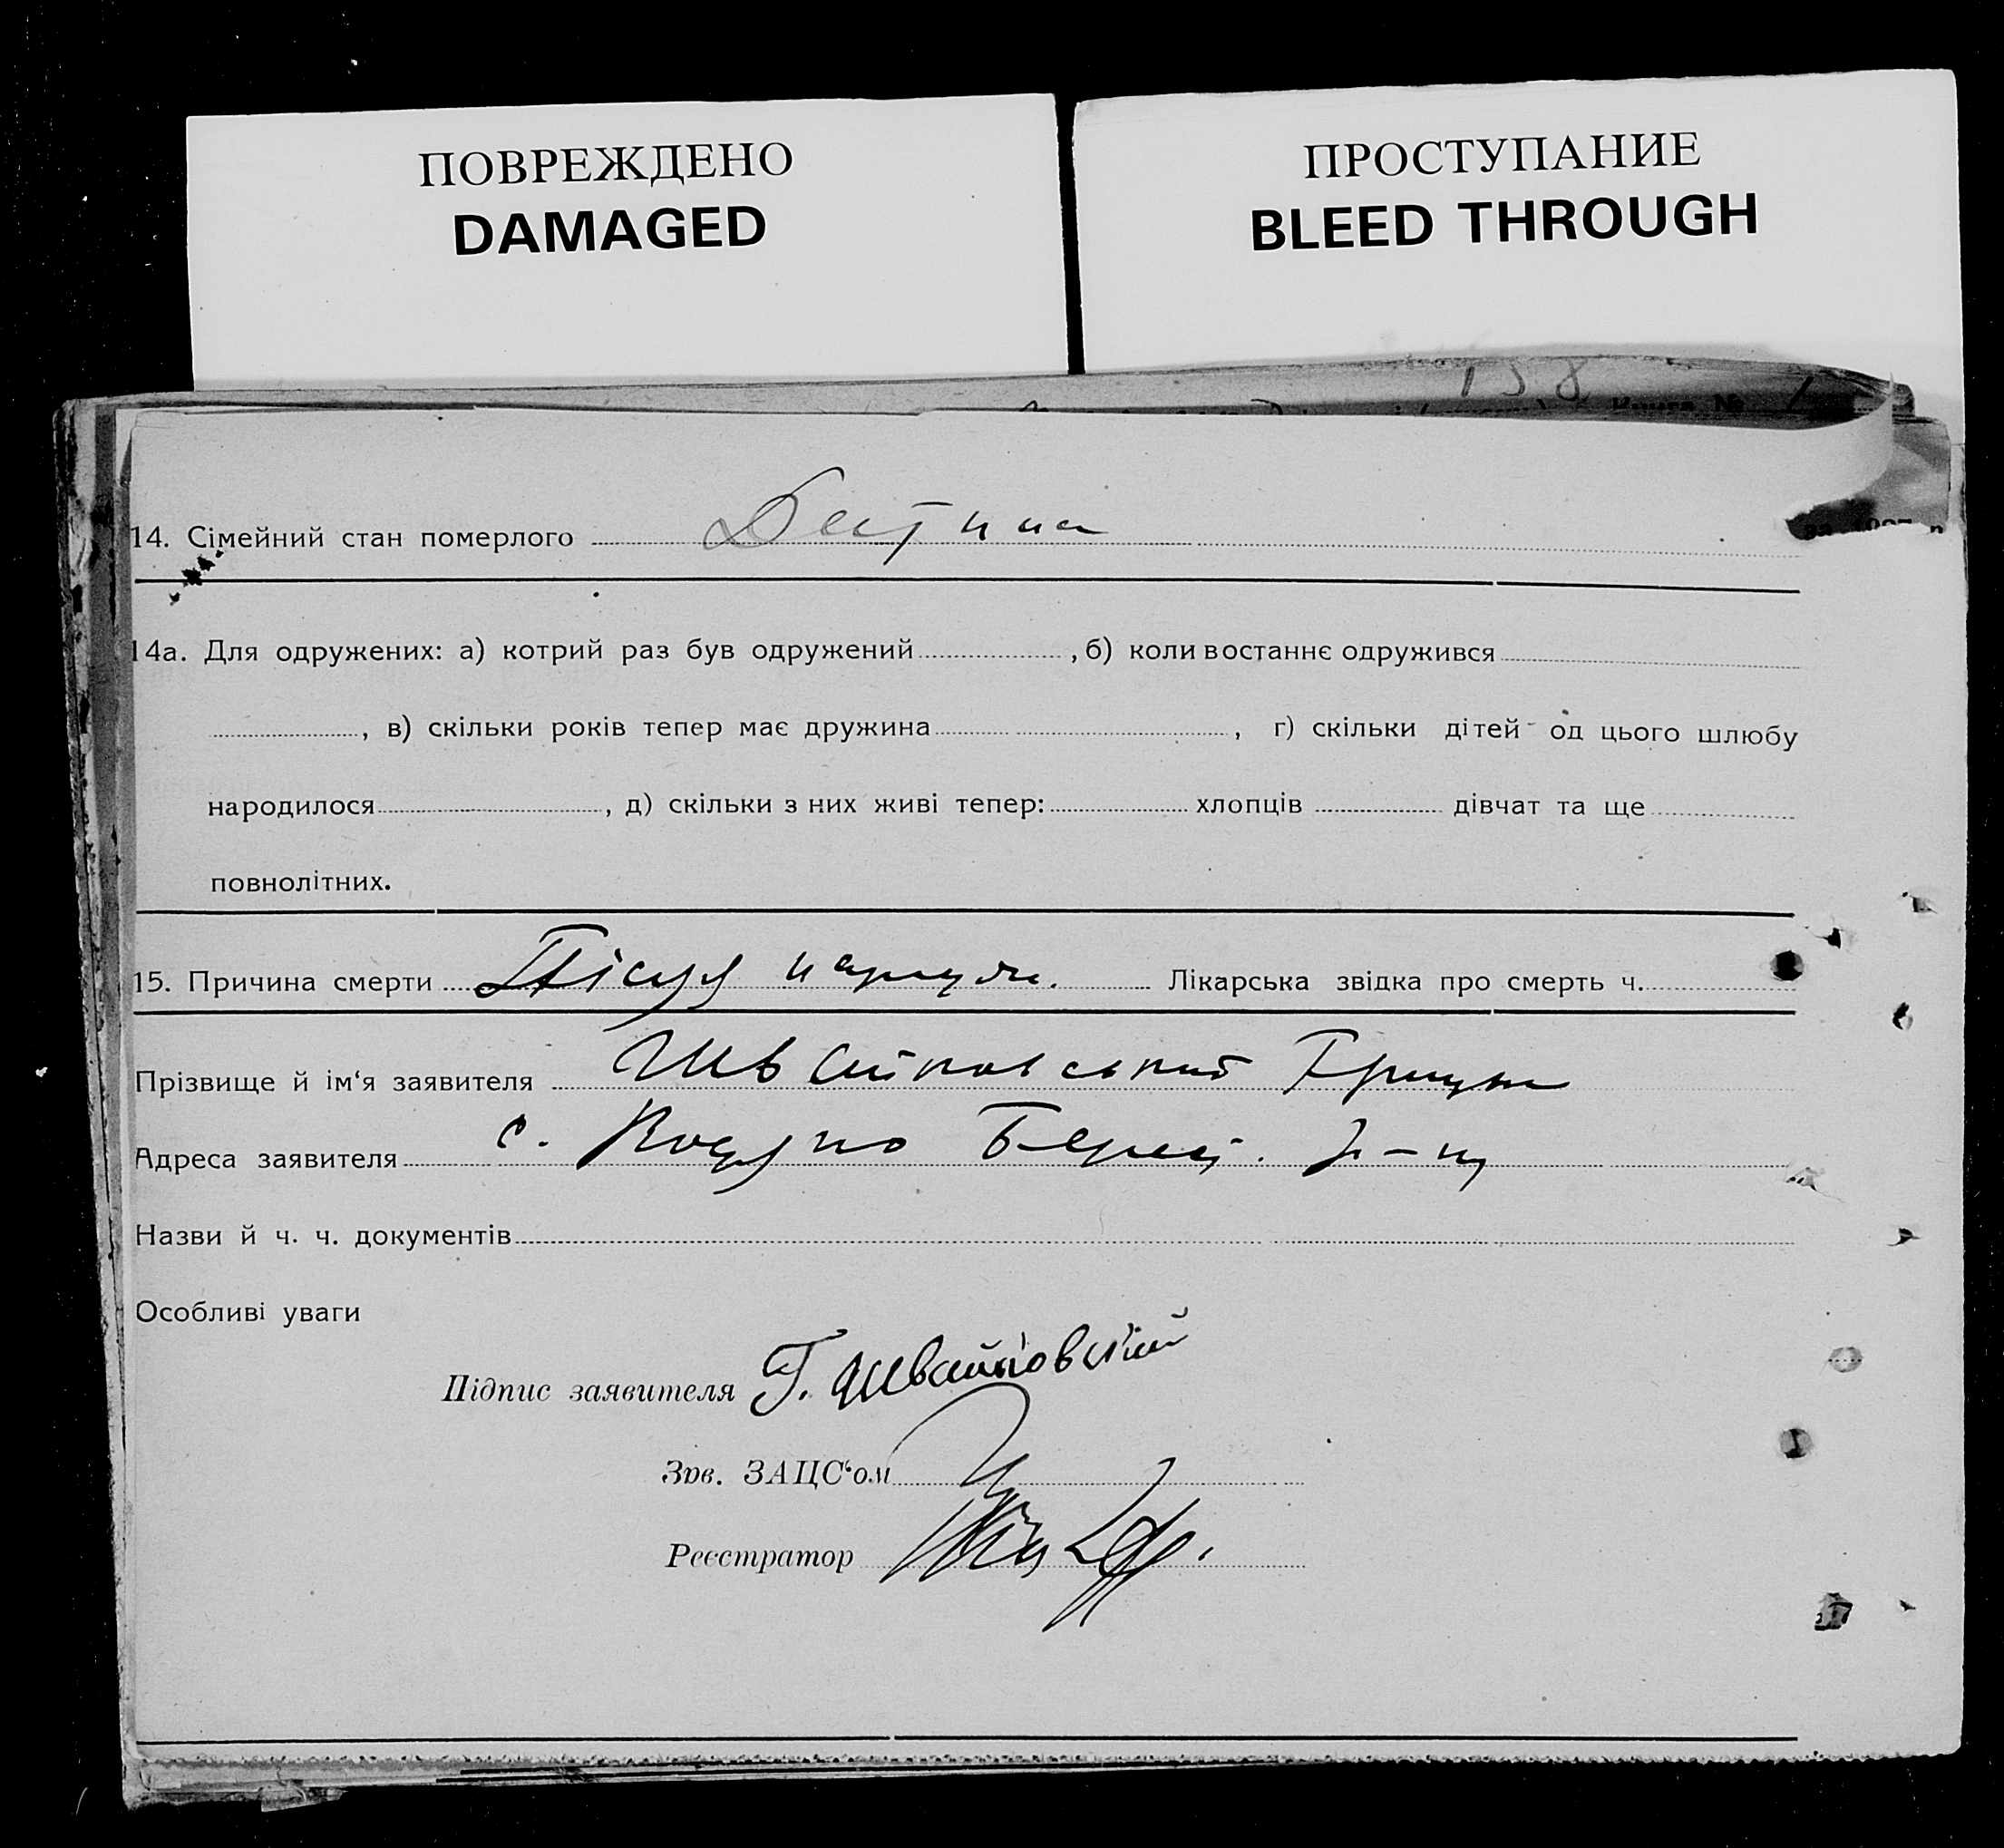 ПОВРЕЖДЕНО
DAMAGED
ПРОСТУПАНИЕ
BLEED THROUGH
158
Книга №
14. Сімейний стан померлого Дитина
14а. Для одружених: а) котрий раз був одружений , б) коли востаннє одружився
, в) скільки років тепер має дружина , г) скільки дітей од цього шлюбу
народилося , д) скільки з них живі тепер: хлопців дівчат та ще
повнолітних.
15. Причина смерти Лікарська звідка про смерть ч.
Прізвище й ім‘я заявителя Швайковський
Адреса заявителя с.
Назви й ч. ч. документів
Особливі уваги
Підпис заявителя Г. Швайковський
Зав. ЗАЦС‘ом
Реєстратор